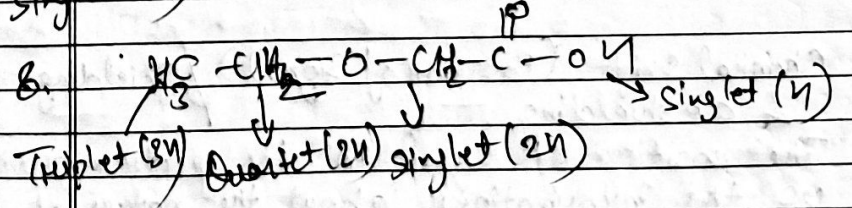 8. H3C-CH2-O-CH2-C-OH
Singlet (H)
Triplet (3H) Quartet (2H) Singlet (2H)